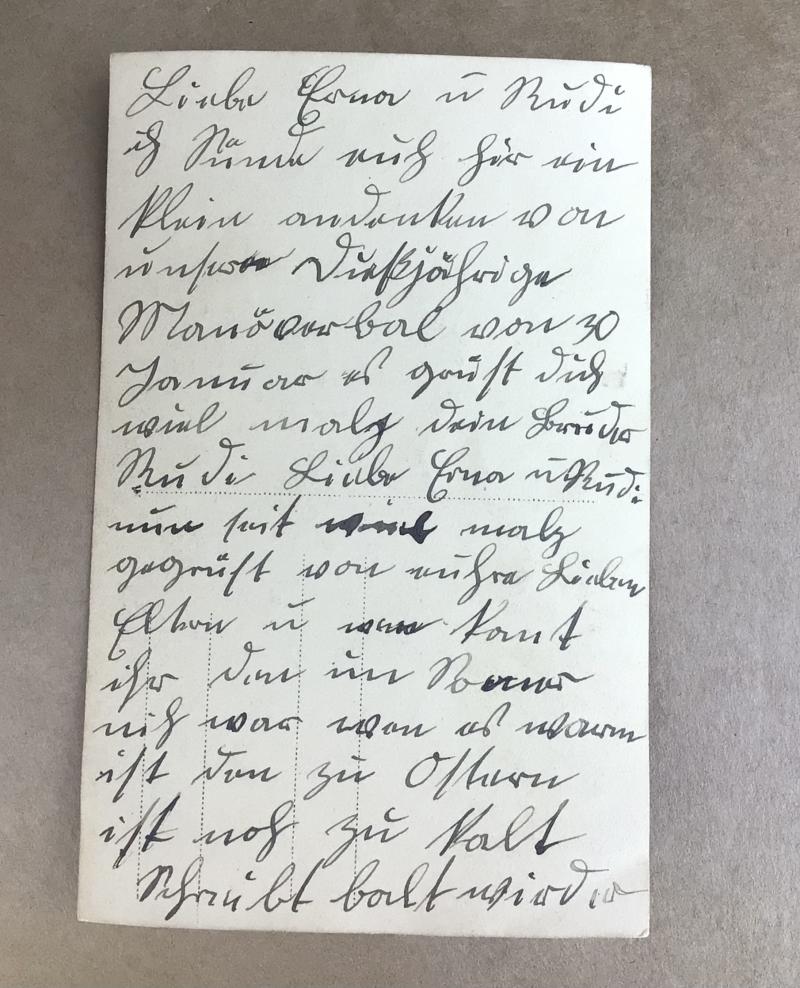 Liebe Erna u Rudi
ich Sände euch hir ein
klein andenken von
unsere Dießjährige
Manöverbal von 30
Januar es grüst dich
viel malz dein Bruder
Rudi Liebe Erna u Rudi
nun seit viel malz
gegrüst von euhre Lieben
Eltern u wen komt
ihr den im Somer
nich war wen es warm
ist den zu Ostern
ist noch zu kalt
Schreibt balt wirder